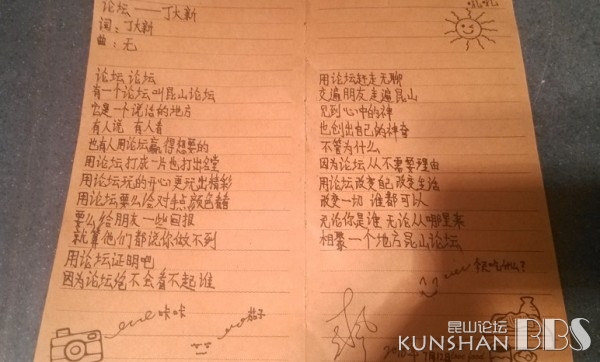 论坛 —— 丁大新
词：丁大新
曲：无
论坛 论坛
有一个论坛叫昆山论坛
它是一个说话的地方
有人说 有人看
也有人用论坛赢得想要的
用论坛打成一片也打出
用论坛玩的开心更玩出精彩
用论坛要么给对手点颜色瞧
要么给朋友一些回报
就算他们都说你做不到
用论坛证明吧
因为论坛绝不会看不起谁
咔咔
茄子
用论坛赶走无聊
交遍朋友走遍昆山
见到心中的神
也创出自己的神奇
不管为什么
因为论坛从不需要理由
用论坛改变自己改变生活
改变一切 谁都可以
无论你是谁 无论从哪里来
相聚一个地方昆山论坛
今天吃什么?
昆山论坛
KUNSHAN BBS